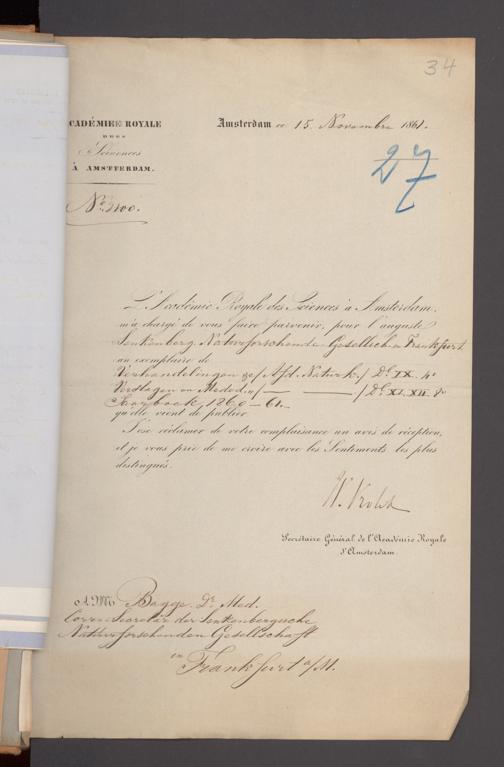 34
ACADÉMIE ROYALE
DES
Sciences
À AMSTERDAM.
Amsterdam ce 15. Novembre 1861.
27
No. 2100.
L'Académie Royale des Sciences à Amsterdam,
m'a chargé de vous faire parvenir, pour l'auguste
Senkenberg. Naturforschende Gesellsch. in Frankfurt
un exemplaire de
Verhandelingen &c / Afd. Natuurk. / Dl. IX. 4o
Verslagen en Meded. „ / — — / Dl. XI. XII. 8o
Jaarboek, 1860–61.
qu'elle vient de publier.
J'ose réclamer de votre complaisance un avis de réception,
et je vous prie de me croire avec les Sentiments les plus
distingués.
W. Vrolik
Secrétaire Général de l'Académie Royale
d'Amsterdam.
Bagge. Dr. Med.
Corr. Secretär der Senkenbergische
Naturforschenden Gesellschaft
in Frankfurt a/M.